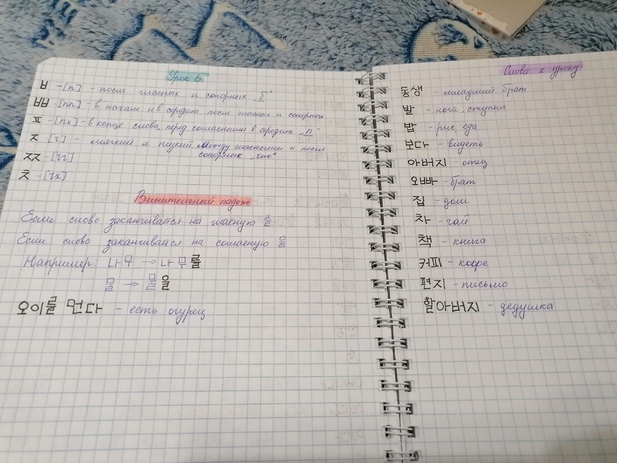 Урок 6.
ㅂ - [п] - после гласных и сонорных "Б"
ㅃ - [пп] - в начале и в середине после гласных и сонорных
ㅍ - [пх] - в конце слова, перед согласными в середине "п"
ㅈ - [ч] - мягкий и глухой. Между гласными и после
сонорных
ㅉ - [чч]
ㅊ - [чх]
Винительный падеж
Если слово заканчивается на гласную 를
Если слово заканчивается на согласную 을
Например: 나무 → 나무를
물 → 물을
오이를 먼다 - есть огурец
Слова к уроку
동생 - младший брат
발 - нога, ступня
밥 - рис, еда
보다 - видеть
아버지 - отец
오빠 - брат
집 - дом
차 - чай
책 - книга
커피 - кофе
편지 - письмо
할아버지 - дедушка